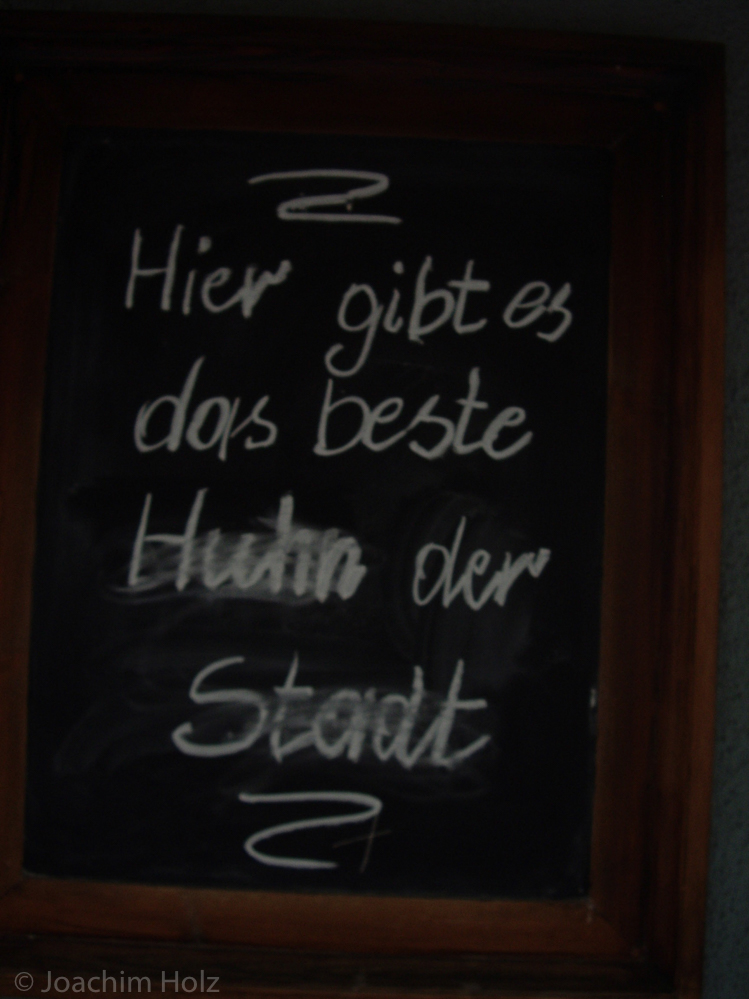 Hier gibt es
das beste
Huhn der
Stadt
© Joachim Holz